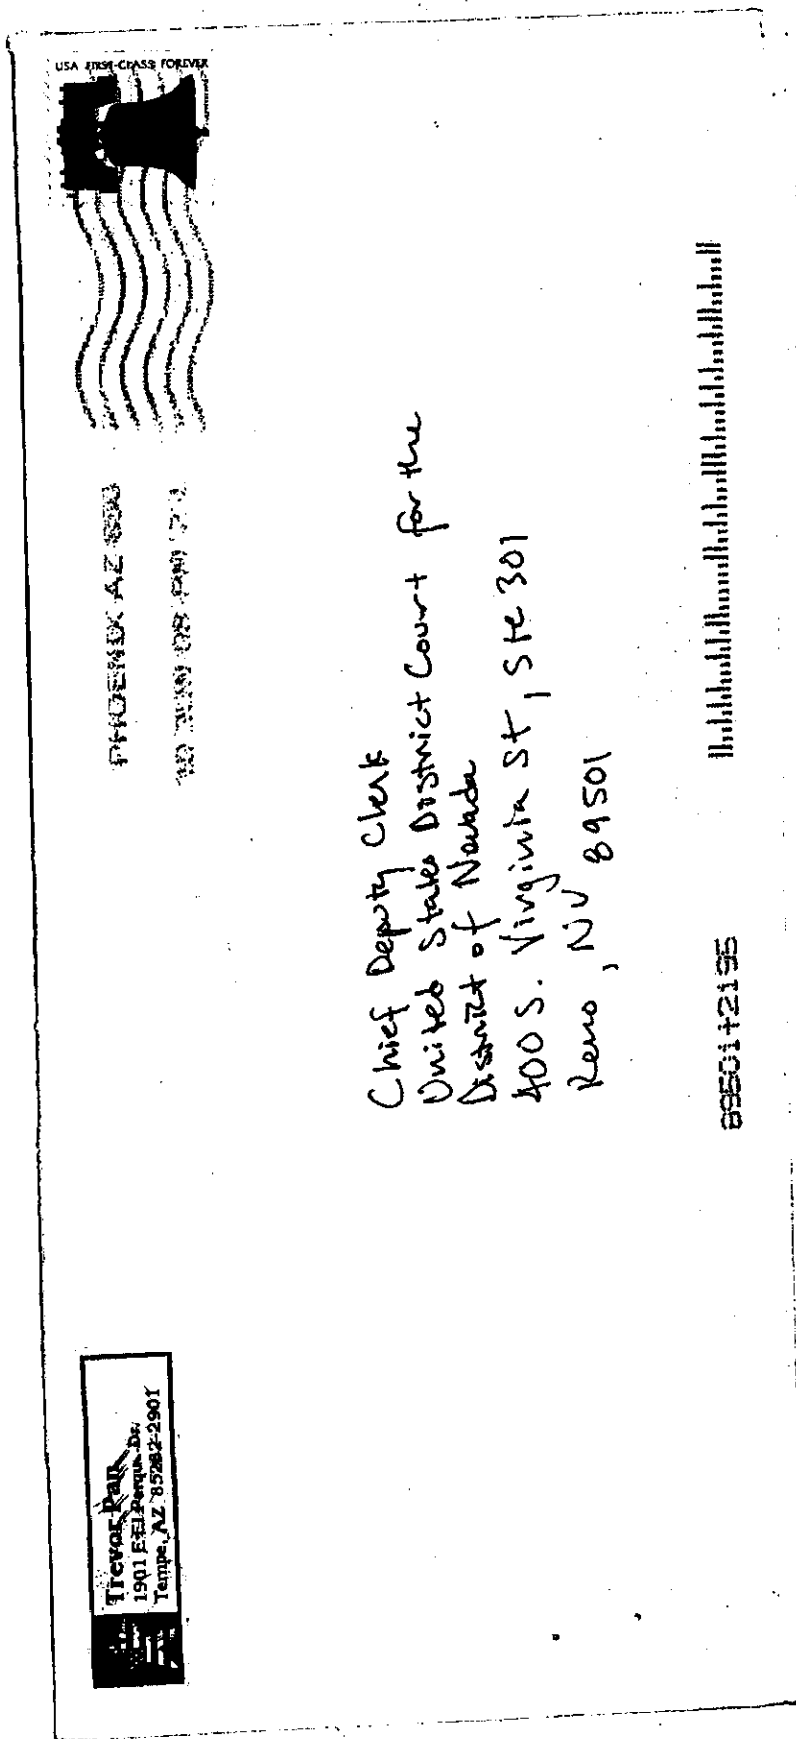 Trevor Pan
1901 E El Parque Dr
Tempe, AZ 85282-2901
PHOENIX AZ
USA FIRST-CLASS FOREVER
Chief Deputy Clerk
United States District Court for the
District of Nevada
400 S. Virginia St, Ste 301
Reno, NV 89501
89501+2195